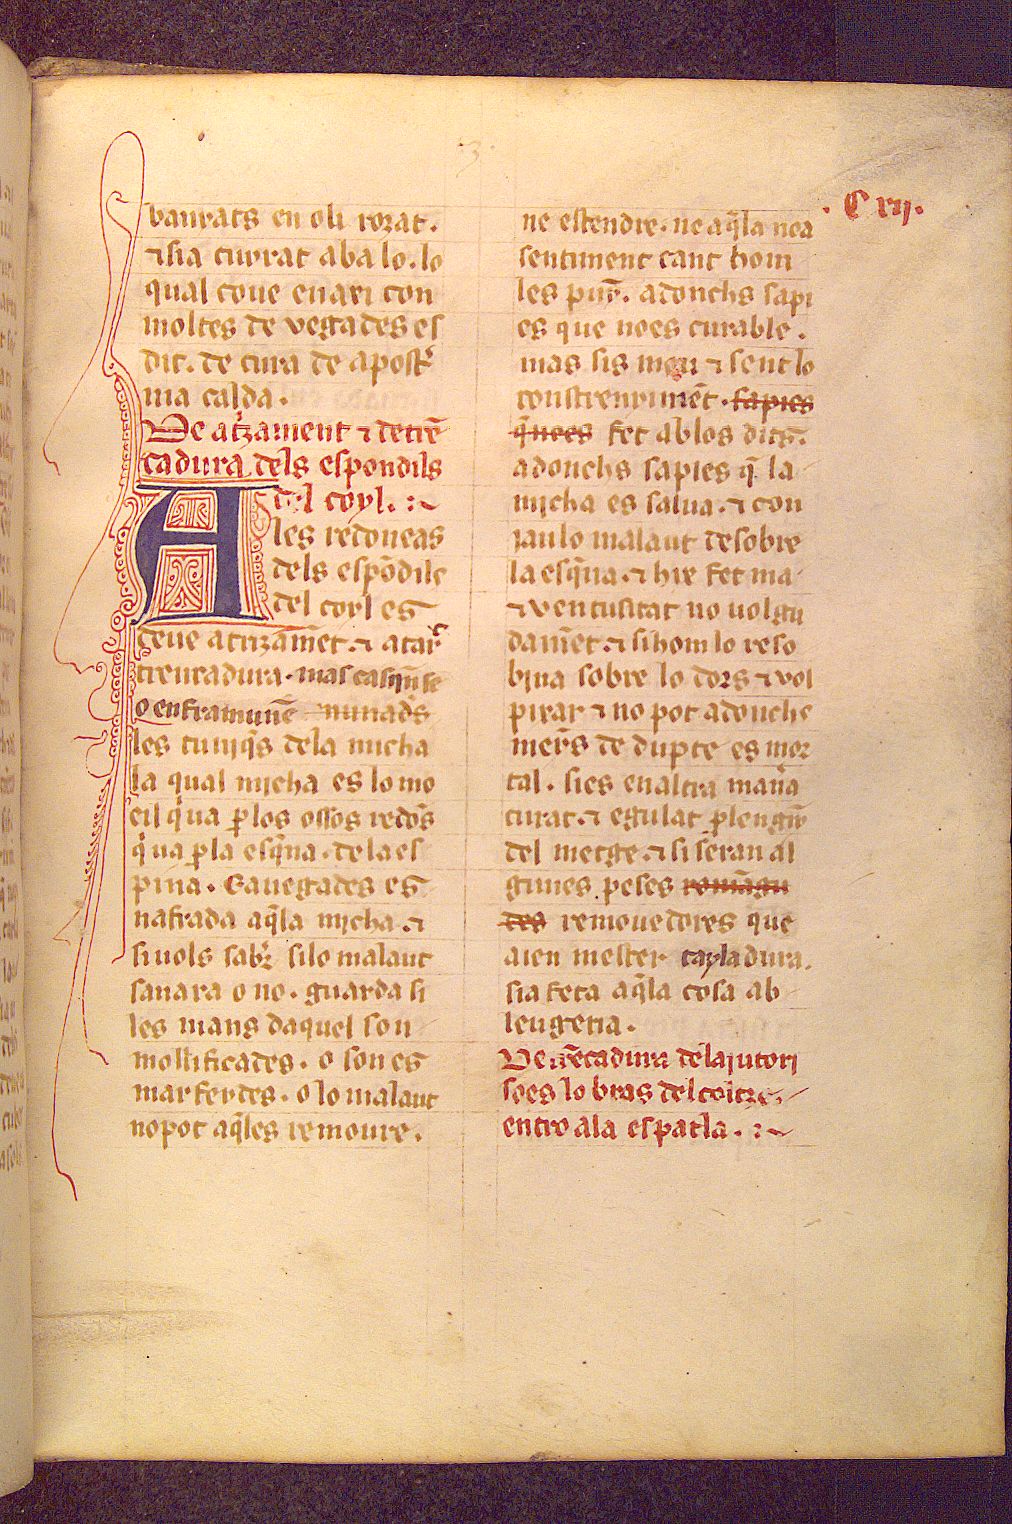 C xij.
banrats en oli rozat.
⁊ sia curat aba lo. lo
qual coue enaxi con
moltes de vegades es
dit. de cura de apost᷑
ma calda.
De at᷑zament ⁊ detrē
cadura dels espondils
del coyl.
A les redoneas
dels espōdils
del coyl es
deue at᷑izam̄et ⁊ a
trencadura. mas
o enframunē
les tuniq̄s dela micha
la qual micha es lo mo
eil q̓ ua ꝑ los ossos redōs
q̓ ua ꝑ la esq̄na. de la es
pina. E auegades es
nafrada aq̄la micha. ⁊
si uols sab᷑ si lo malaut
sanara o no. guarda si
les mans daquel son
mollificades. o son es
marfeydes. o lo malaut
no pot aq̄les remoure.
ne estendre. ne aq̄la no a
sentiment cant hom
les puȳ. adonchs sapi
es que no es curable.
mas sis mou ⁊ sent lo
constrenyimēt. sapies
q̄ no es fet ab los dits.
adonchs sapies q̄ la
micha es salua. ⁊ con
jau lo malaut desobre
la esq̄na. ⁊ hix fet ma
⁊ ventusitat no uolgu
dam̄et. ⁊ si hom lo reso
bina sobre lo dors ⁊ vol
pixar ⁊ no pot adonchs
mens de dupte es mor
tal. si es en altra man̄a
curat. ⁊ egulat ꝑ lengiȳ
del metge. ⁊ si seran al
gunes peses romāgu
des remouedores que
aien mester tayladura.
sia feta aq̄la cosa ab
leugeria.
De trēcadura del ajutori
so es lo bras del coltze
entro a la espatla.